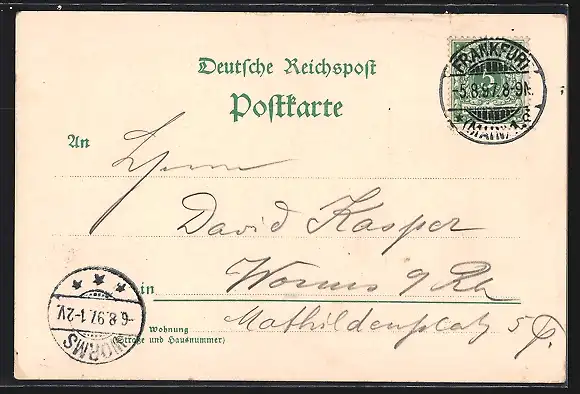 Deutsche Reichspost
Postkarte
FRANKFURT
5.8.97.8-9N.
* (MAIN) 1.
5
An
Herrn
David Kasper
in Worms a/Rh
Mathildenplatz 5
Wohnung
(Straße und Hausnummer)
6.8.97.1-2V.
WORMS